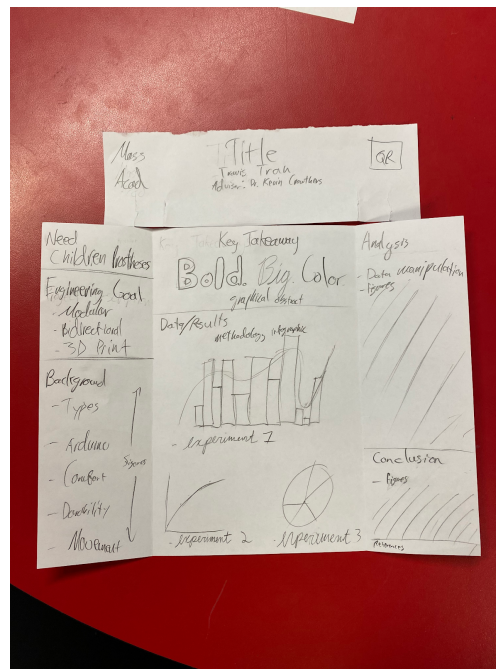 Mass
Acad
Title
Travis Tran
Advisor: Dr. Kevin Crowthers
QR
Need
Children Prostheses
Engineering Goal
- Modular
- Bidirectional
- 3D Print
Background
- Types
- Arduino
- Comfort
- Durability
- Movement
figures
Key Takeaway
Bold. Big. Color
graphical abstract
Data/Results
methodology infographic
- experiment 1
- experiment 2
- experiment 3
Analysis
- Data manipulation
- Figures
Conclusion
- Figures
References